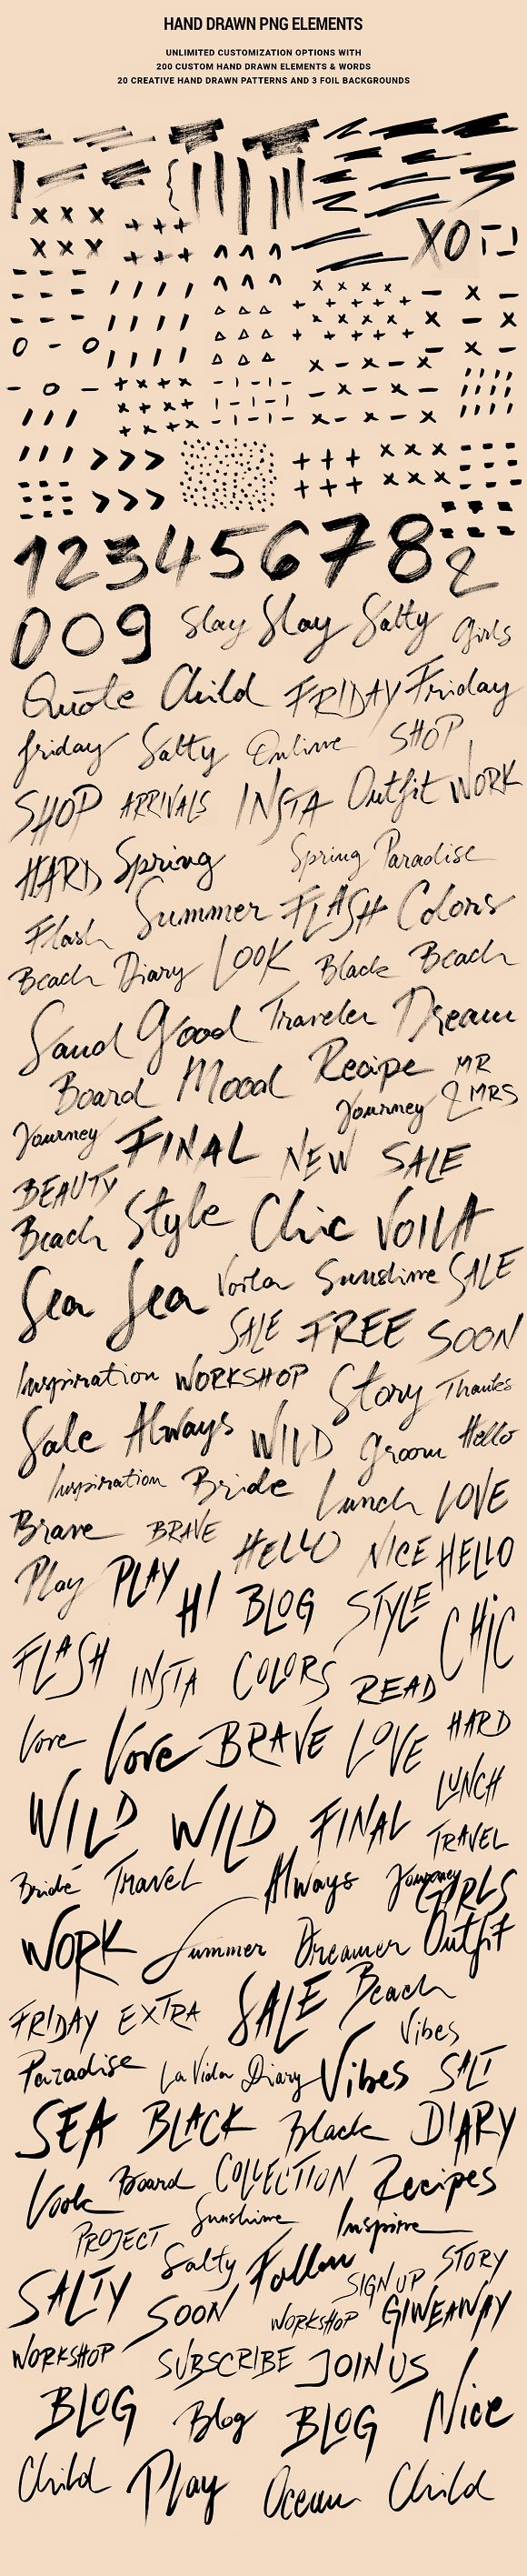 HAND DRAWN PNG ELEMENTS
UNLIMITED CUSTOMIZATION OPTIONS WITH
200 CUSTOM HAND DRAWN ELEMENTS & WORDS
20 CREATIVE HAND DRAWN PATTERNS AND 3 FOIL BACKGROUNDS
XO
1 2 3 4 5 6 7 8 2
0 0 9 Slay Slay Salty Girls
Quote Child FRIDAY Friday
friday Salty Online SHOP
SHOP ARRIVALS INSTA Outfit WORK
HARD Spring Spring Paradise
Flash Summer FLASH Colors
Beach Diary LOOK Black Beach
Sand Good Traveler Dream
Board Mood Recipe MR
& MRS
Journey
Journey FINAL NEW SALE
BEAUTY
Beach Style Chic VOILA
Sea Sea Voila Sunshine SALE
SALE FREE SOON
Inspiration WORKSHOP Story Thanks
Sale Always WILD Groom Hello
Inspiration Bride Lunch LOVE
Brave BRAVE HELLO NICE HELLO
Play PLAY HI BLOG STYLE CHIC
FLASH INSTA COLORS READ
Love Love BRAVE LOVE HARD
LUNCH
WILD WILD FINAL TRAVEL
Bride Travel Always Journey GIRLS
WORK Summer Dreamer Outfit
FRIDAY EXTRA SALE Beach
Vibes
Paradise La Vida Diary Vibes SALT
SEA BLACK Black DIARY
Look Board COLLECTION Recipes
PROJECT Sunshine Inspire
Salty Follow STORY
SALTY SOON SIGN UP
WORKSHOP GIWEAWAY
WORKSHOP SUBSCRIBE JOIN US
BLOG Blog BLOG Nice
Child Play Ocean Child